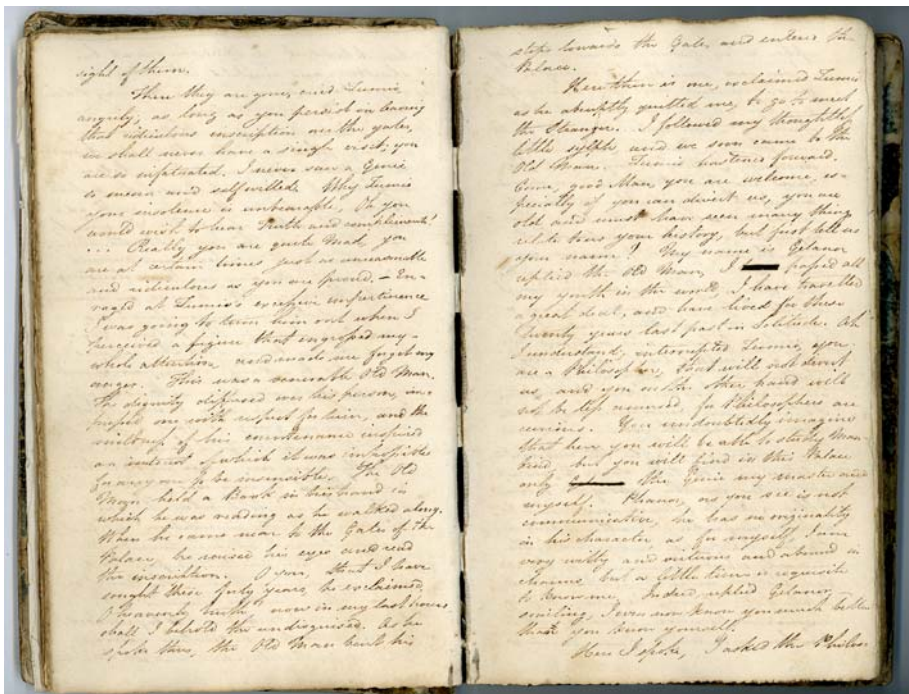 sight of them.
There they are gone, cried Zumis,
angrily, as long as you persist on leaving
that ridiculous inscription on the gates,
we shall never have a single visit; you
are so infatuated. I never saw a Genie
so mean and selfwilled. Why Zumis
your insolence is unbearable, Oh you
would wish to hear Truth and compliments!
... Really you are quite Mad, you
are at certain times just as unreasonable
and ridiculous as you are proud. – En-
raged at Zumis's excessive impertinence
I was going to turn him out when I
perceived a figure that engrossed my
whole attention, and made me forget my
anger. This was a venerable Old Man.
The dignity diffused over his person, im-
pressed me with respect for him, and the
mildness of his countenance inspired
an interest of which it was impossible
for any one to be insensible. The Old
Man held a Book in his hand in
which he was reading as he walked along.
When he came near to the Gates of the
Palace, he raised his eyes and read
the inscription. O you, that I have
sought these forty years, he exclaimed,
O heavenly truth! now in my last hours
shall I behold thee undisguised. As he
spoke thus, the Old Man bent his
steps towards the Gates and enters the
Palace.
Here then is one, exclaimed Zumis
as he abruptly quitted me, to go to meet
the Stranger. I followed my thoughtless
little sylph and we soon came to the
Old Man. Zumis hastened forward.
Come, good Man, you are welcome, es-
pecially if you can divert us, you are
old and must have seen many things
relate to us your history, but first tell us
your name? My name is Gelanor
replied the Old Man, I passed all
my youth in the world, I have travelled
a great deal, and have lived for these
twenty years last past in Solitude. Ah
I understand, interrupted Zumis, you
are a Philosopher, that will not divert
us, and you on the other hand will
not be less amused, for Philosophers are
curious. You undoubtedly imagine
that here you will be able to study Man-
kind, but you will find in this Palace
only the Genie my master and
myself. Phanor, as you see is not
communicative, he has no originality
in his character as for myself, I am
very witty and various and abound in
charms, but a little time is requisite
to know me. Indeed, replied Gelanor
smiling, I even now know you much better
than you know yourself.
Here I spoke, I asked the Philoso-